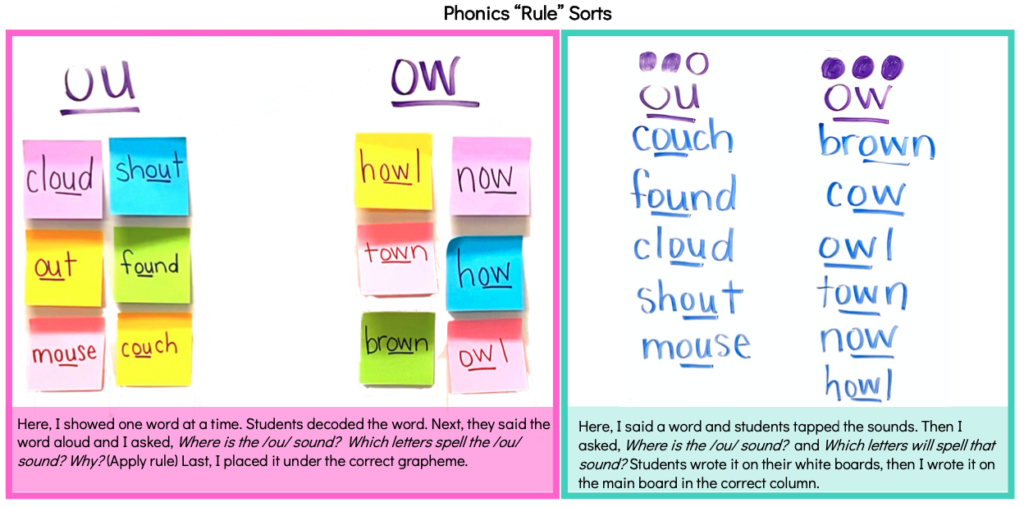 Phonics “Rule” Sorts
ou
ow
cloud
shout
out
found
mouse
couch
howl
now
town
how
brown
owl
Here, I showed one word at a time. Students decoded the word. Next, they said the
word aloud and I asked, Where is the /ou/ sound? Which letters spell the /ou/
sound? Why? (Apply rule) Last, I placed it under the correct grapheme.
ou
ow
couch
found
cloud
shout
mouse
brown
cow
owl
town
now
howl
Here, I said a word and students tapped the sounds. Then I
asked, Where is the /ou/ sound? and Which letters will spell that
sound? Students wrote it on their white boards, then I wrote it on
the main board in the correct column.